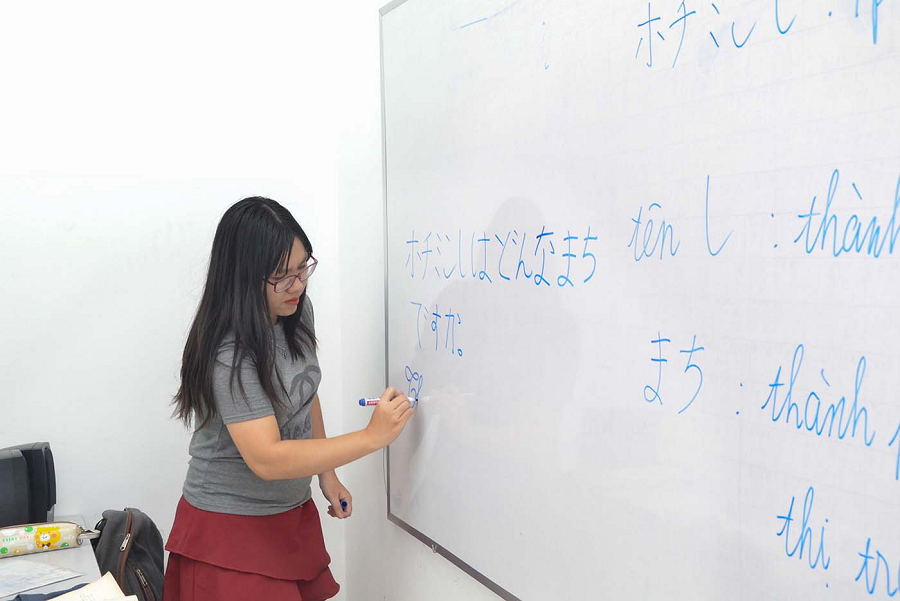 ホチミンし :
ホチミンしはどんなまち
ですか。
tên し : thành
まち : thành
thị